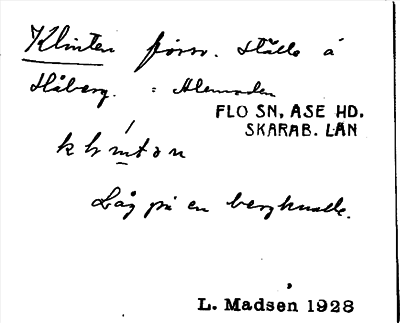 Klinten försv. ställe å
Håberg. = Alemaden
FLO SN, ÅSE HD.
SKARAB. LÄN
klíntən
Låg på en bergknalle.
L. Madsen 1928